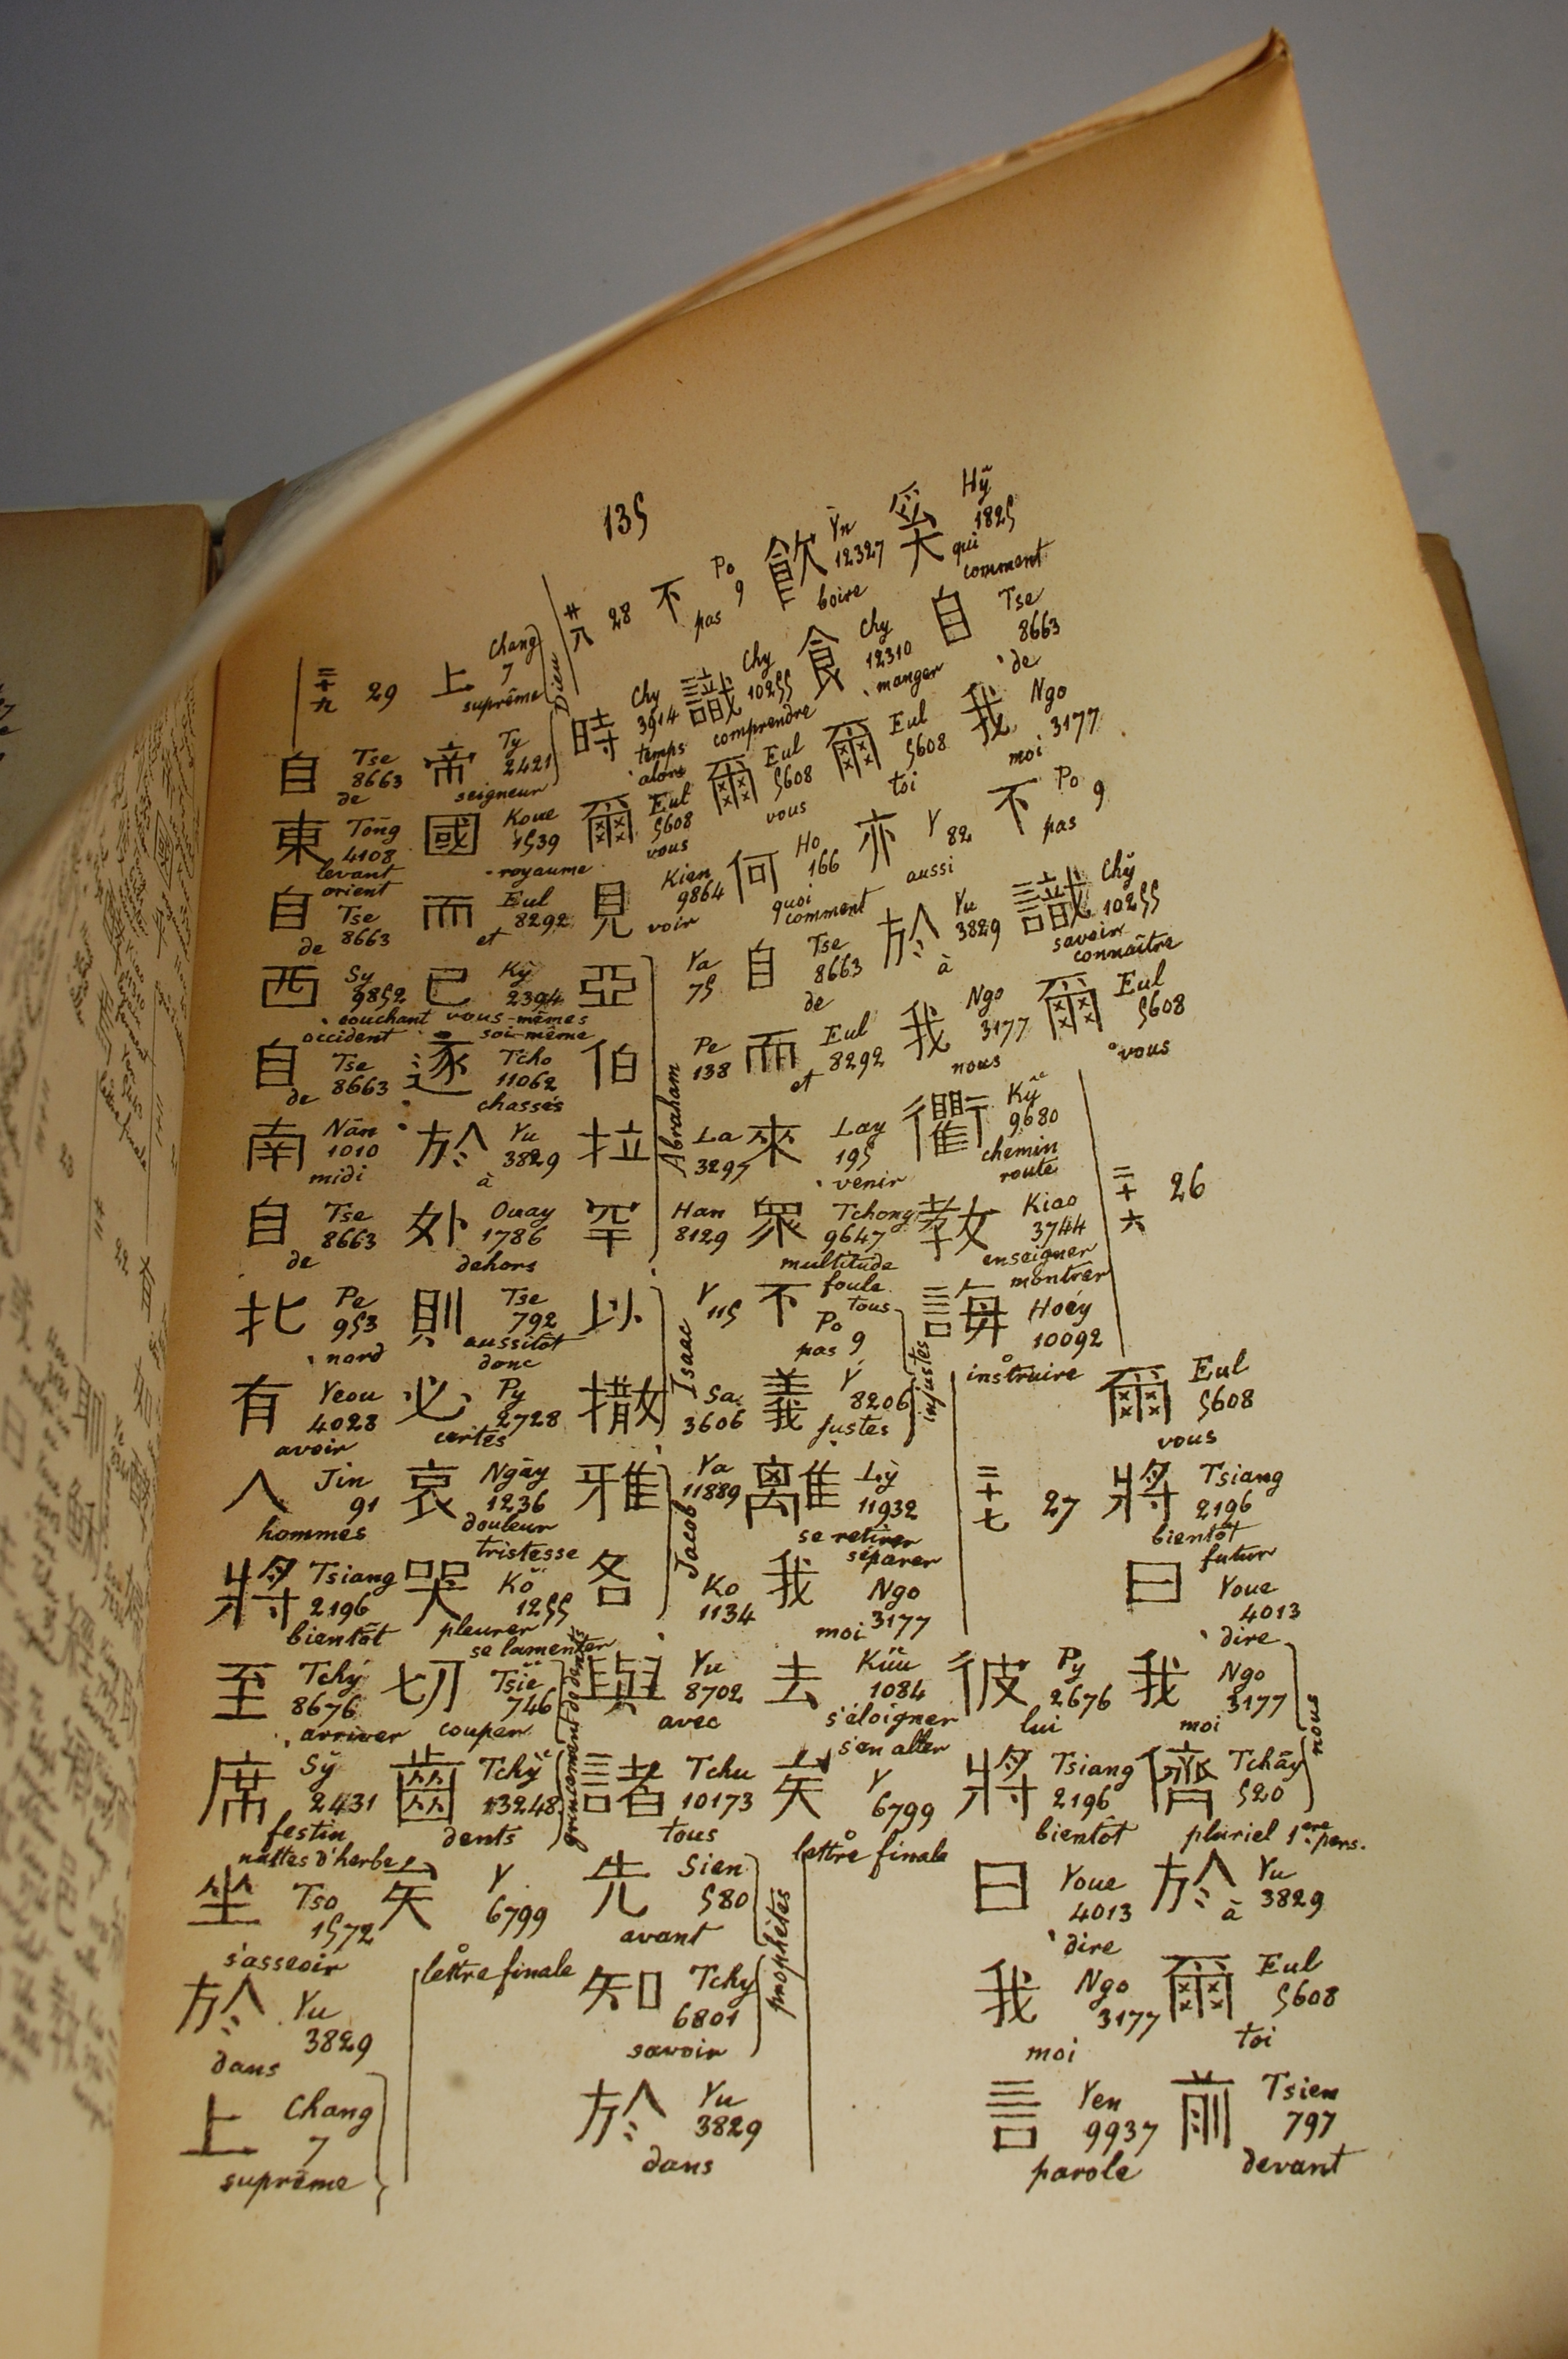 135
奚 Hỹ 1825 qui comment
自 Tse 8663 de
我 Ngo 3177 moi
不 Po 9 pas
識 Chỹ 10255 savoir connaître
爾 Eul 5608 vous
二十六 26
爾 Eul 5608 vous
將 Tsiang 2196 bientôt futur
曰 Youe 4013 dire
我 Ngo 3177 moi
儕 Tchäy 520 pluriel 1ère pers.
nous
於 Yu 3829 à
爾 Eul 5608 toi
前 Tsien 797 devant
飲 Yn 12327 boire
食 Chy 12310 manger
爾 Eul 5608 toi
亦 Y 82 aussi
於 Yu 3829 à
我 Ngo 3177 nous
衢 Kỹ 9680 chemin route
教 Kiao 3744 enseigner montrer
誨 Hoéy 10092 instruire
二十七 27
彼 Py 2676 lui
將 Tsiang 2196 bientôt
曰 Youe 4013 dire
我 Ngo 3177 moi
言 Yen 9937 parole
不 Po 9 pas
識 Chy 10255 comprendre
爾 Eul 5608 vous
何 Ho 166 quoi comment
自 Tse 8663 de
而 Eul 8292 et
來 Lay 195 venir
眾 Tchong 9647 multitude foule tous
不 Po 9 pas
義 Y 8206 justes
injustes
離 Lỳ 11932 se retirer séparer
我 Ngo 3177 moi
去 Küu 1084 s'éloigner s'en aller
矣 Y 6799 lettre finale
廿八 28
時 Chy 3914 temps alors
爾 Eul 5608 vous
見 Kien 9864 voir
亞 Ya 75
伯 Pe 138
拉 La 3297
罕 Han 8129
Abraham
以 Y 115
撒 Sa 3606
Isaac
雅 Ya 11889
各 Ko 1134
Jacob
與 Yu 8702 avec
諸 Tchu 10173 tous
先 Sien 580 avant
知 Tchy 6801 savoir
prophètes
於 Yu 3829 dans
上 Chang 7 suprême
帝 Ty 2421 seigneur
Dieu
國 Koue 1539 royaume
而 Eul 8292 et
己 Kỹ 2394 vous-mêmes soi-même
逐 Tcho 11062 chassés
於 Yu 3829 à
外 Ouay 1786 dehors
則 Tse 792 aussitôt donc
必 Py 2728 certes
哀 Ngäy 1236 douleur tristesse
哭 Kö 1255 pleurer se lamenter
切 Tsië 746 couper
齒 Tchỹ 13248 dents
grincement de dents
矣 Y 6799 lettre finale
二十九 29
自 Tse 8663 de
東 Tong 4108 levant orient
自 Tse 8663 de
西 Sy 9852 couchant occident
自 Tse 8663 de
南 Nân 1010 midi
自 Tse 8663 de
北 Pe 953 nord
有 Yeou 4028 avoir
人 Jin 91 hommes
將 Tsiang 2196 bientôt
至 Tchý 8676 arriver
席 Sỹ 2431 festin nattes d'herbe
坐 Tso 1572 s'asseoir
於 Yu 3829 dans
上 Chang 7 suprême